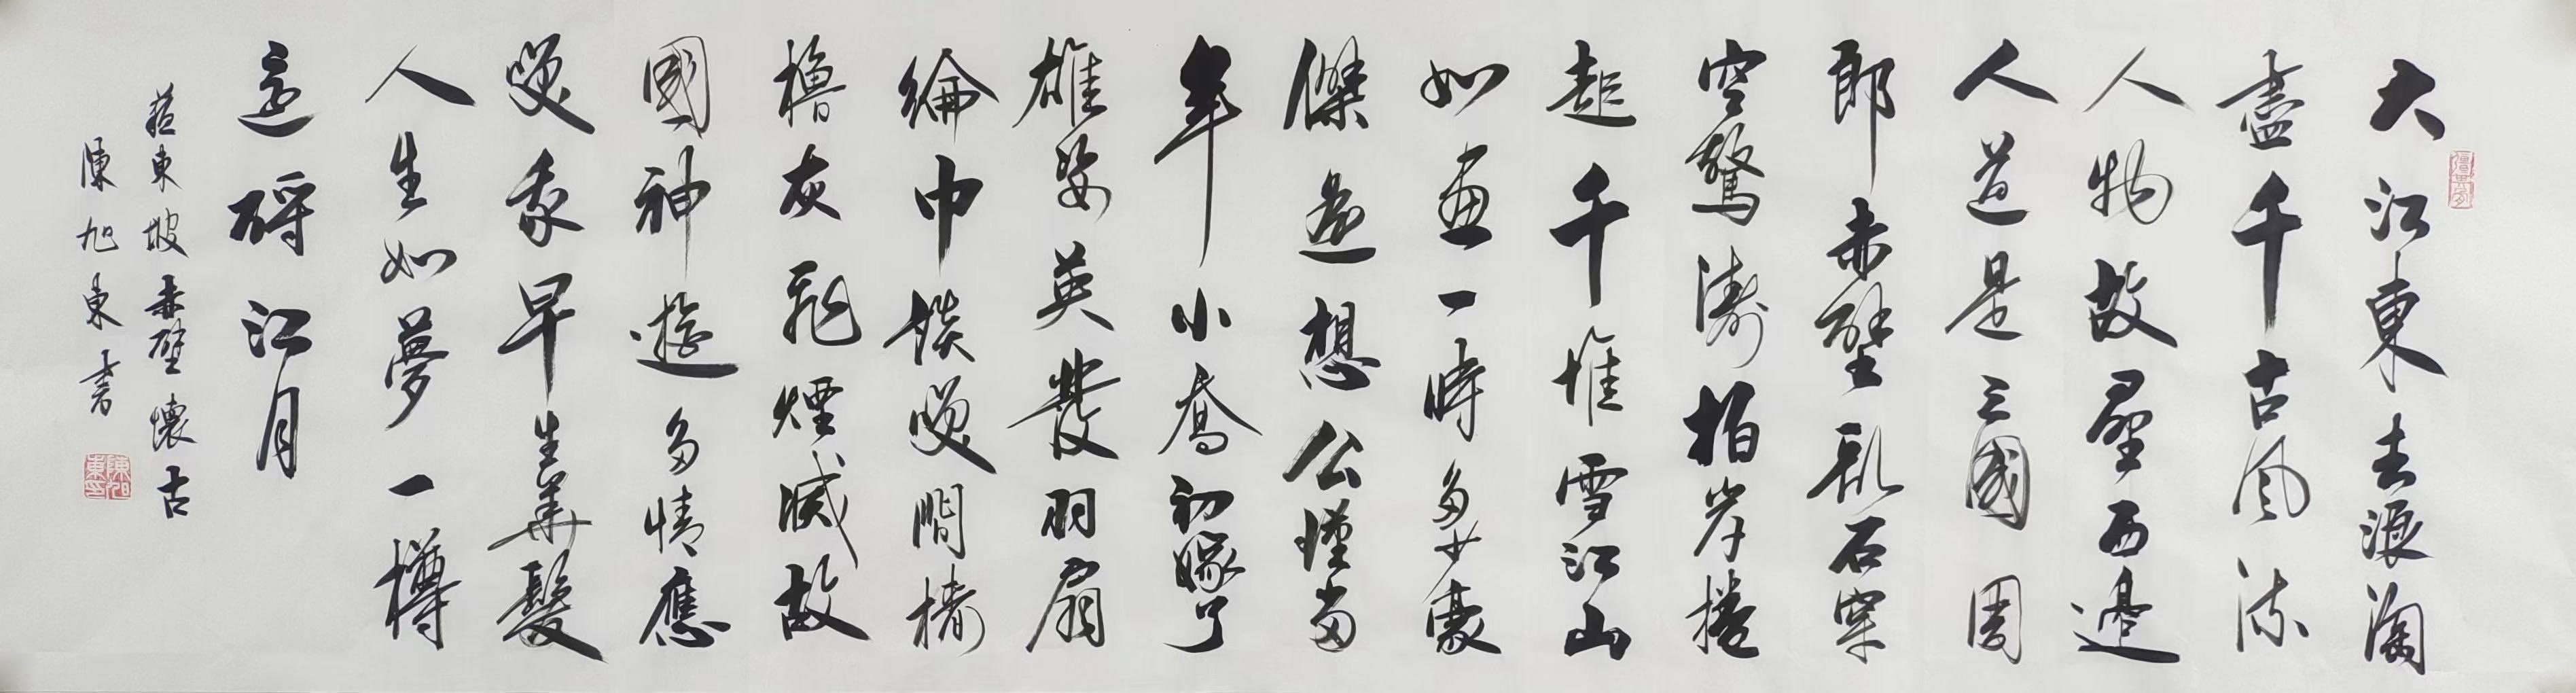 大江東去浪淘
盡千古風流
人物故壘西邊
人道是三國周
郎赤壁乱石穿
空驚濤拍岸捲
起千堆雪江山
如畫一時多少豪
傑遙想公瑾當
年小喬初嫁了
雄姿英發羽扇
綸巾談笑間檣
櫓灰飛煙滅故
國神遊多情應
笑我早生華髮
人生如夢一樽
還酹江月
蘇東坡赤壁懷古
陳旭東書
陳旭東印